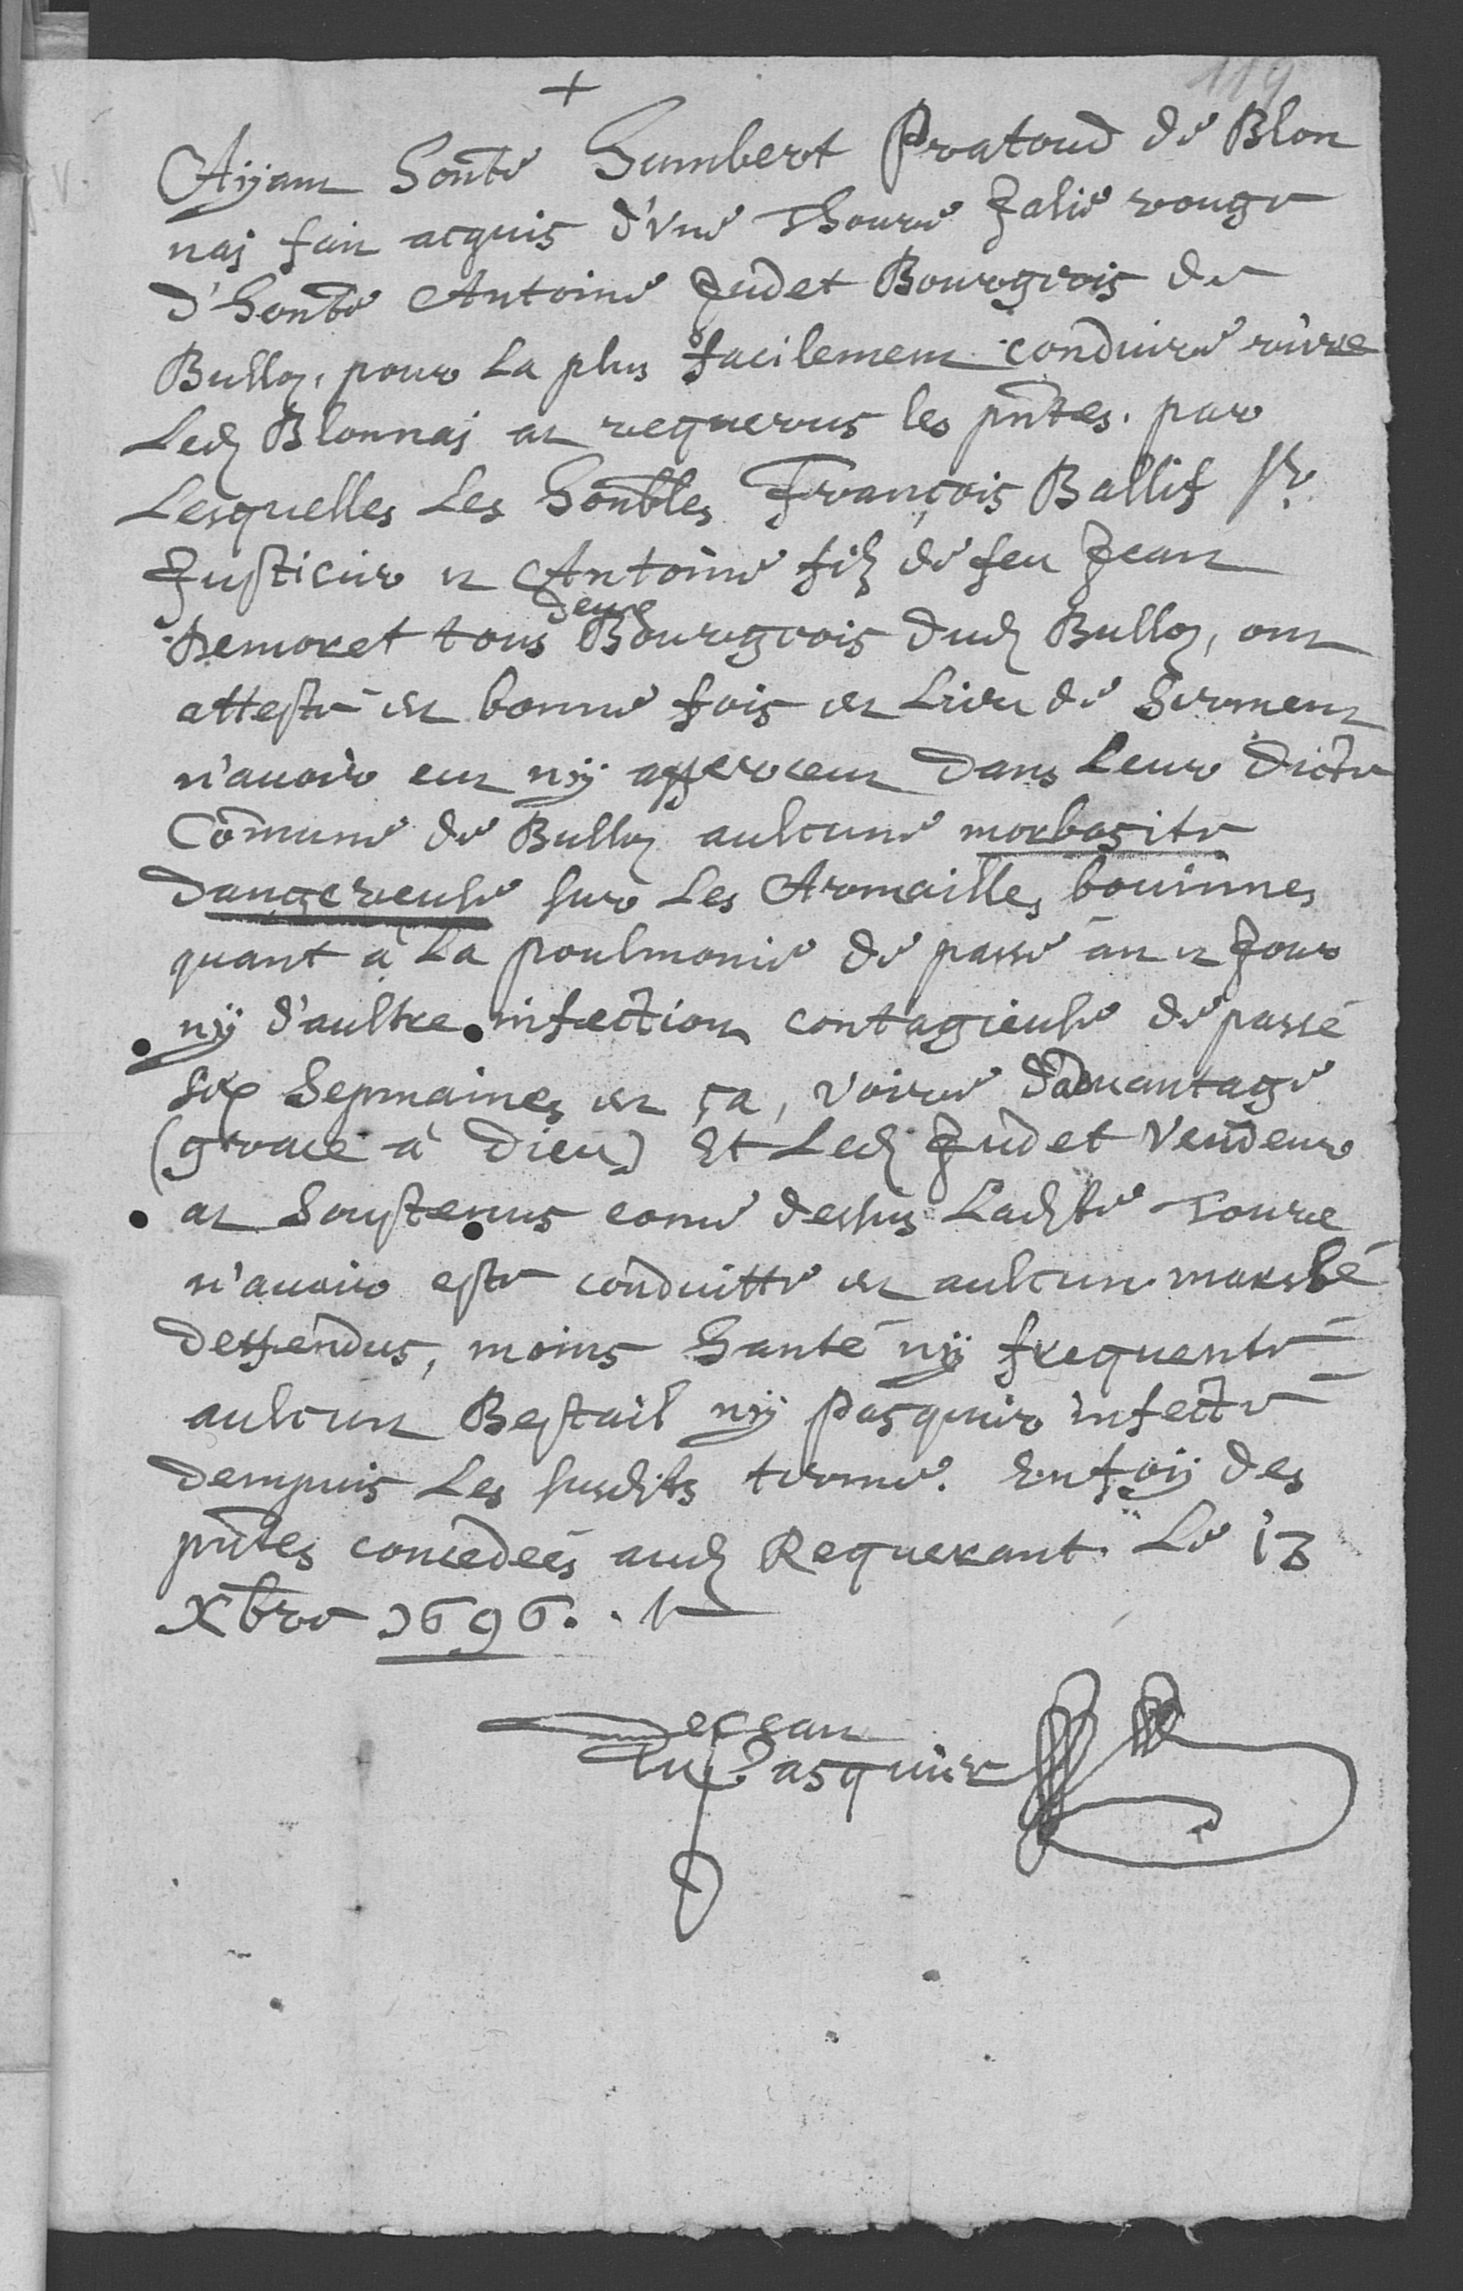 119
+
Aÿant honte Humbert Pratoud de Blon
naj fait acquis d'Vne Thoure Jalie rouge
d'honble Antoine Judet Bourgeois de
Bulloz, pour la plus facilement conduire rière
Led Blonnaj at requerus les pñtes. par
Lesquelles Les honbles François Ballif Sr
Justicier et Antoine filz de feu Jean
Demoret tous deux Bourgeois dud Bulloz, ont
attesté en bonne fois en Lieu de Serment
n'auoir eut nÿ apperceut dans Leur dicte
Comune de Bulloz aulcune morbosite
dangereuse sur Les Armailles bouinnes
quant à La poulmonie de passé àn et Jour
nÿ d'aultre infection contagieuse de passé
six Sepmaines en ça, voire dauantage
(grace à Dieu) Et Led Judet Vendeur
at Soustenus come dessus Ladste Toure
n'auoir esté conduitte en aulcun marché
deffendus, moins hanté nÿ frequenté
aulcun Bestail nÿ Pasquier infecté
dempuis Les susdits terme. En foÿ des
pñtes concedeés aud Requerant Le 13
Xbre 1696.
Du Pasquier